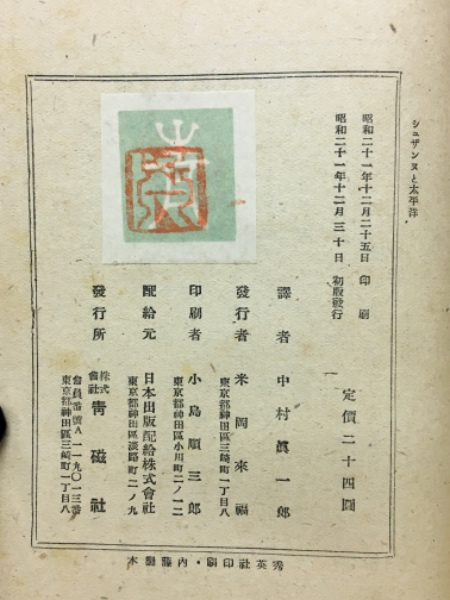 シュザンヌと太平洋
昭和二十一年十二月二十五日 印刷
昭和二十一年十二月三十日 初版發行
定價二十四圓
譯者 中村眞一郎
發行者 米岡來福
東京都神田區三崎町一丁目八
印刷者 小島順三郎
東京都神田區小川町二ノ一二
配給元 日本出版配給株式會社
東京都神田區淡路町二ノ九
發行所 株式會社 靑磁社
會員番號A一一九〇一三番
東京都神田區三崎町一丁目八
秀英社印刷・內藤製本